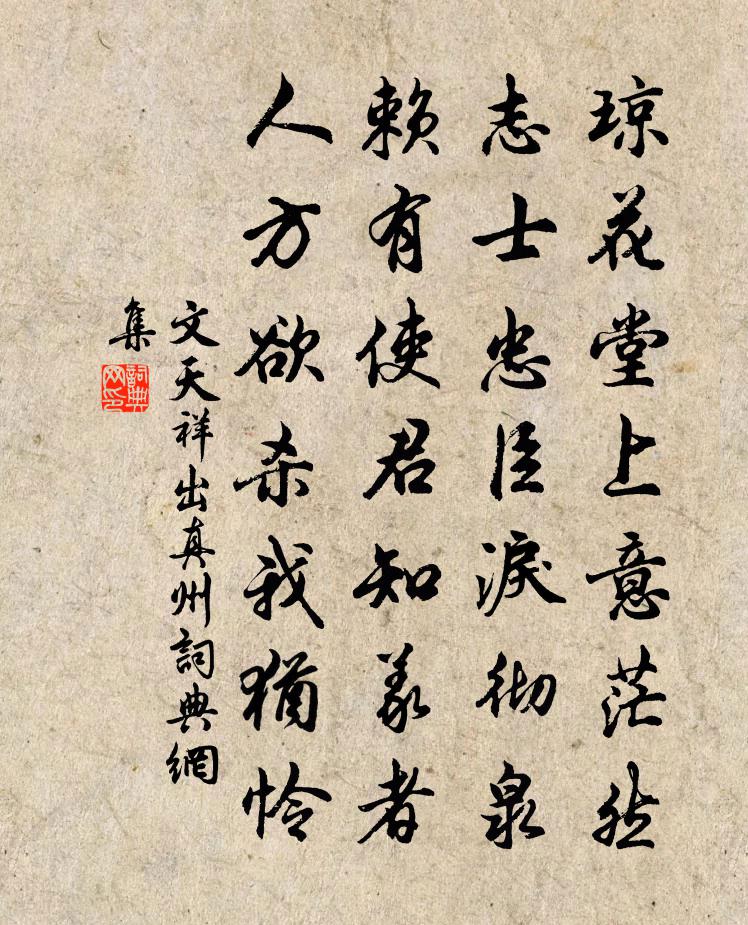 琼花堂上意茫然
志士忠臣淚彻泉
赖有使君知義者
人方欲杀我猶怜
文天祥出真州詞典網
集
詞典网印